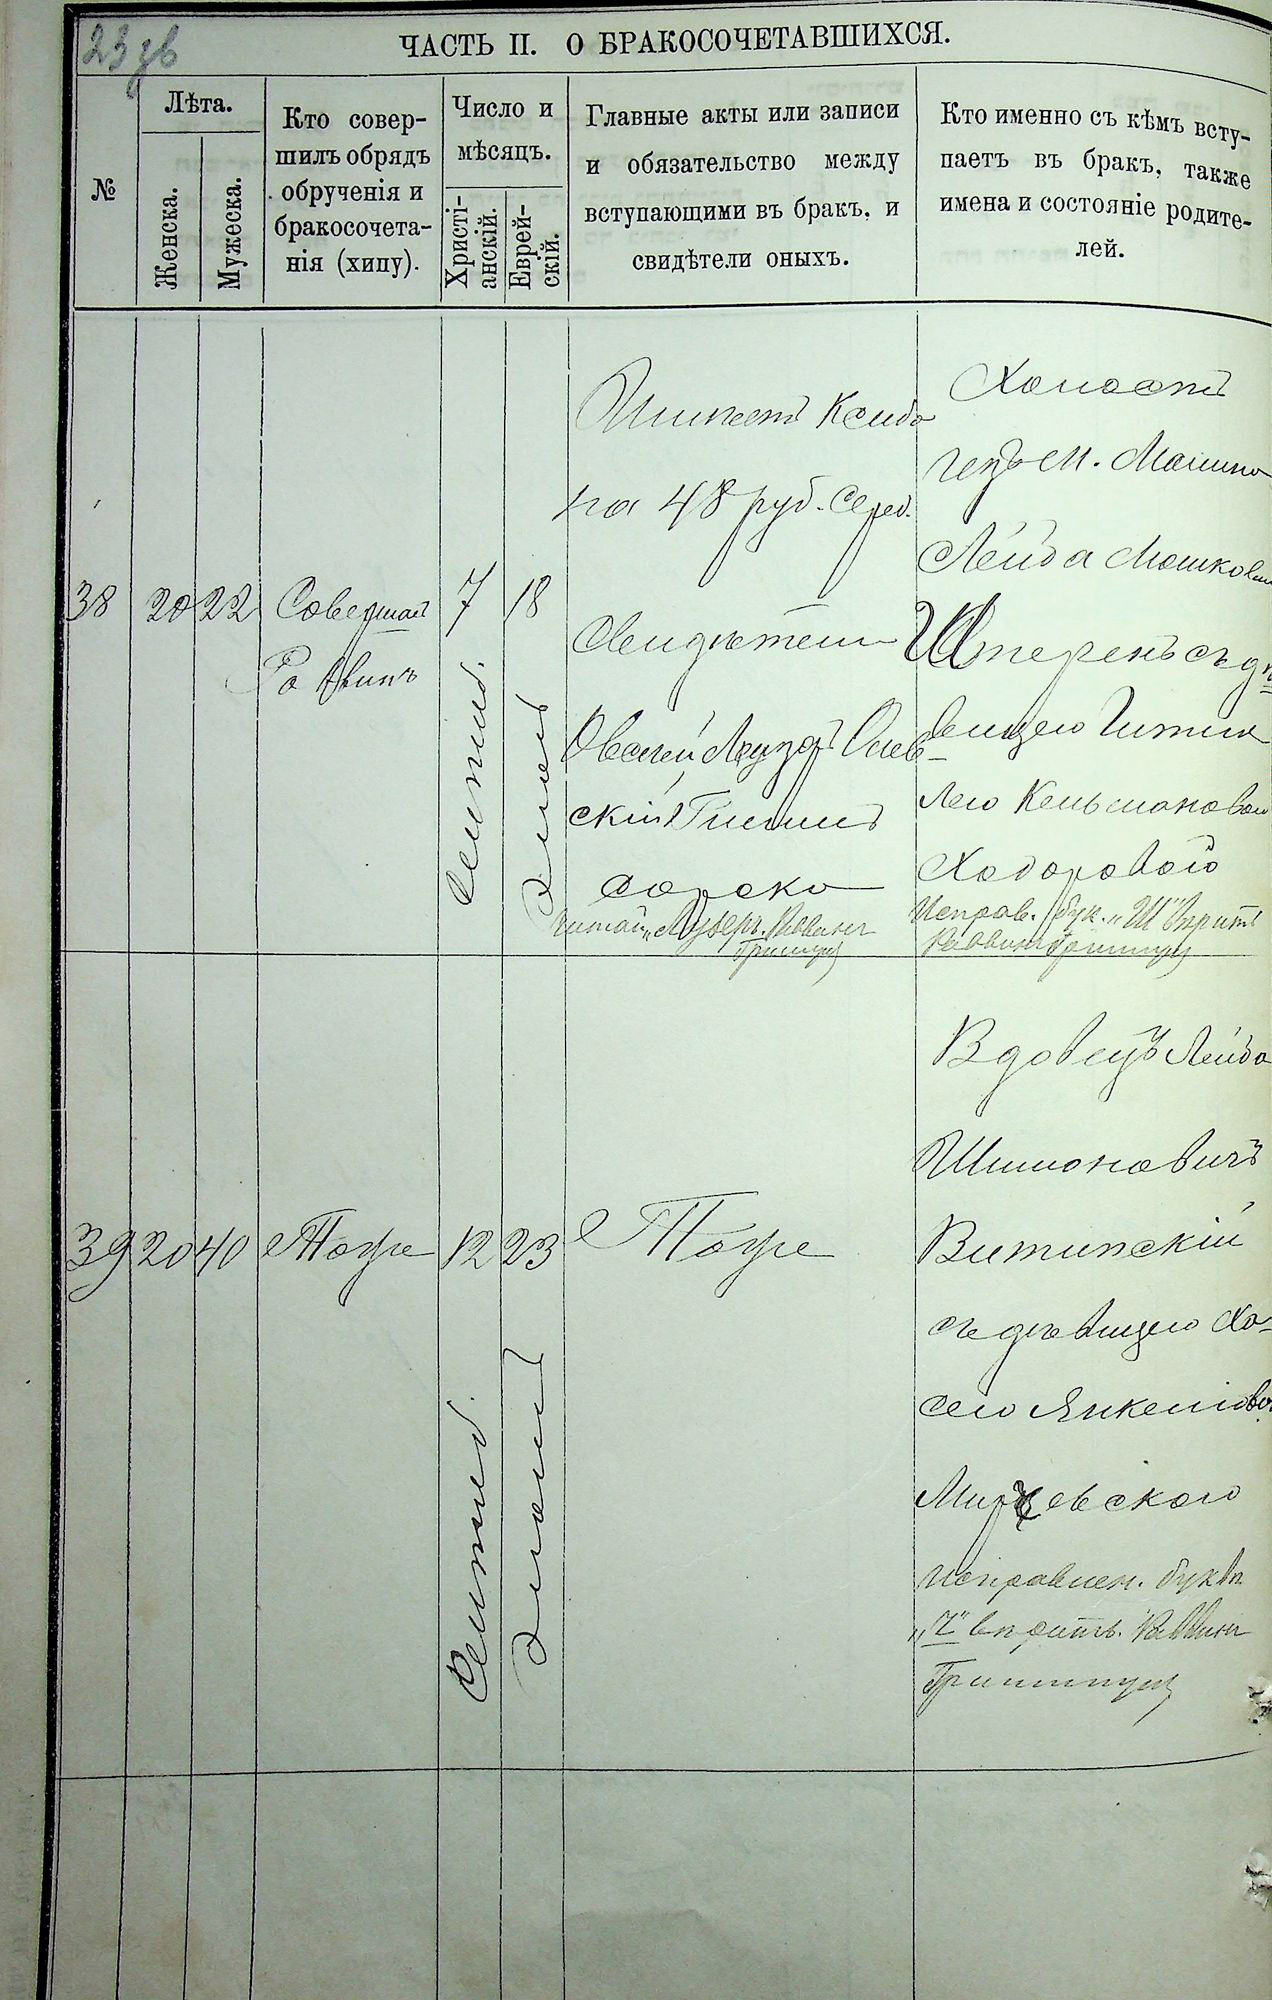 23 зв
ЧАСТЬ II. О БРАКОСОЧЕТАВШИХСЯ.
№
Лѣта.
Женска.
Мужеска.
Кто совер-
шилъ обрядъ
обрученія и
бракосочета-
нія (хипу).
Число и
мѣсяцъ.
Христі-
анскій.
Еврей-
скій.
Главные акты или записи
и обязательство между
вступающими въ бракъ, и
свидѣтели оныхъ.
Кто именно съ кѣмъ всту-
паетъ въ бракъ, также
имена и состояніе родите-
лей.
38
20
22
Совершал
Раввинъ
7
Сентяб.
18
Элюль
на 48 руб. Серед.
Свидѣтели
Овсей Лузар Олев-
скій
сорско
читай „Лузеръ. Раввинъ
Холостъ
м.
Лейба Мошкович
Штеренъ съ дѣ
вицею
лею Кельмановой
Ходоровой
Исправ. бук. „Ш" вѣрить
Раввинъ
39
20
40
Тоже
12
Сентяб.
23
Элюль
Тоже
Вдовецъ Лейба
Шимоновичъ
Витинскій
съ дѣвицею Ха-
сею Янкелево
Мирчевского
исправлен. буква
„ч" вѣрить. Раввинъ